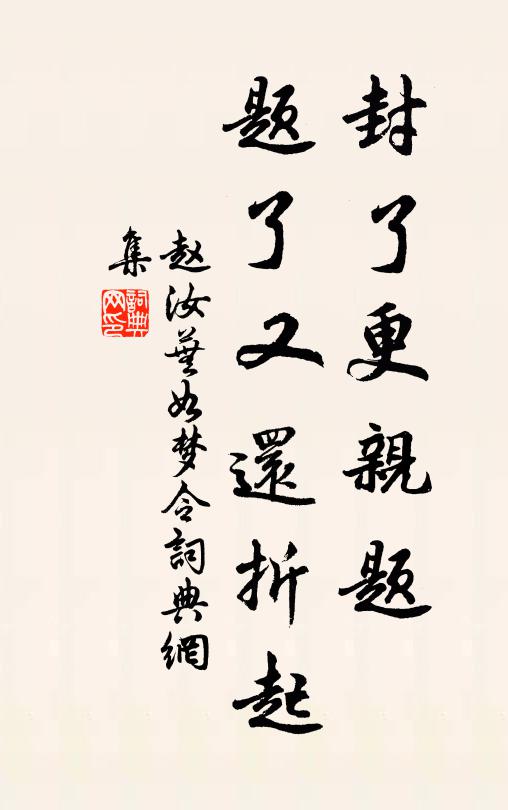 封了更親题
题了又還折起
赵汝茪如梦令詞典網
集
詞典网印